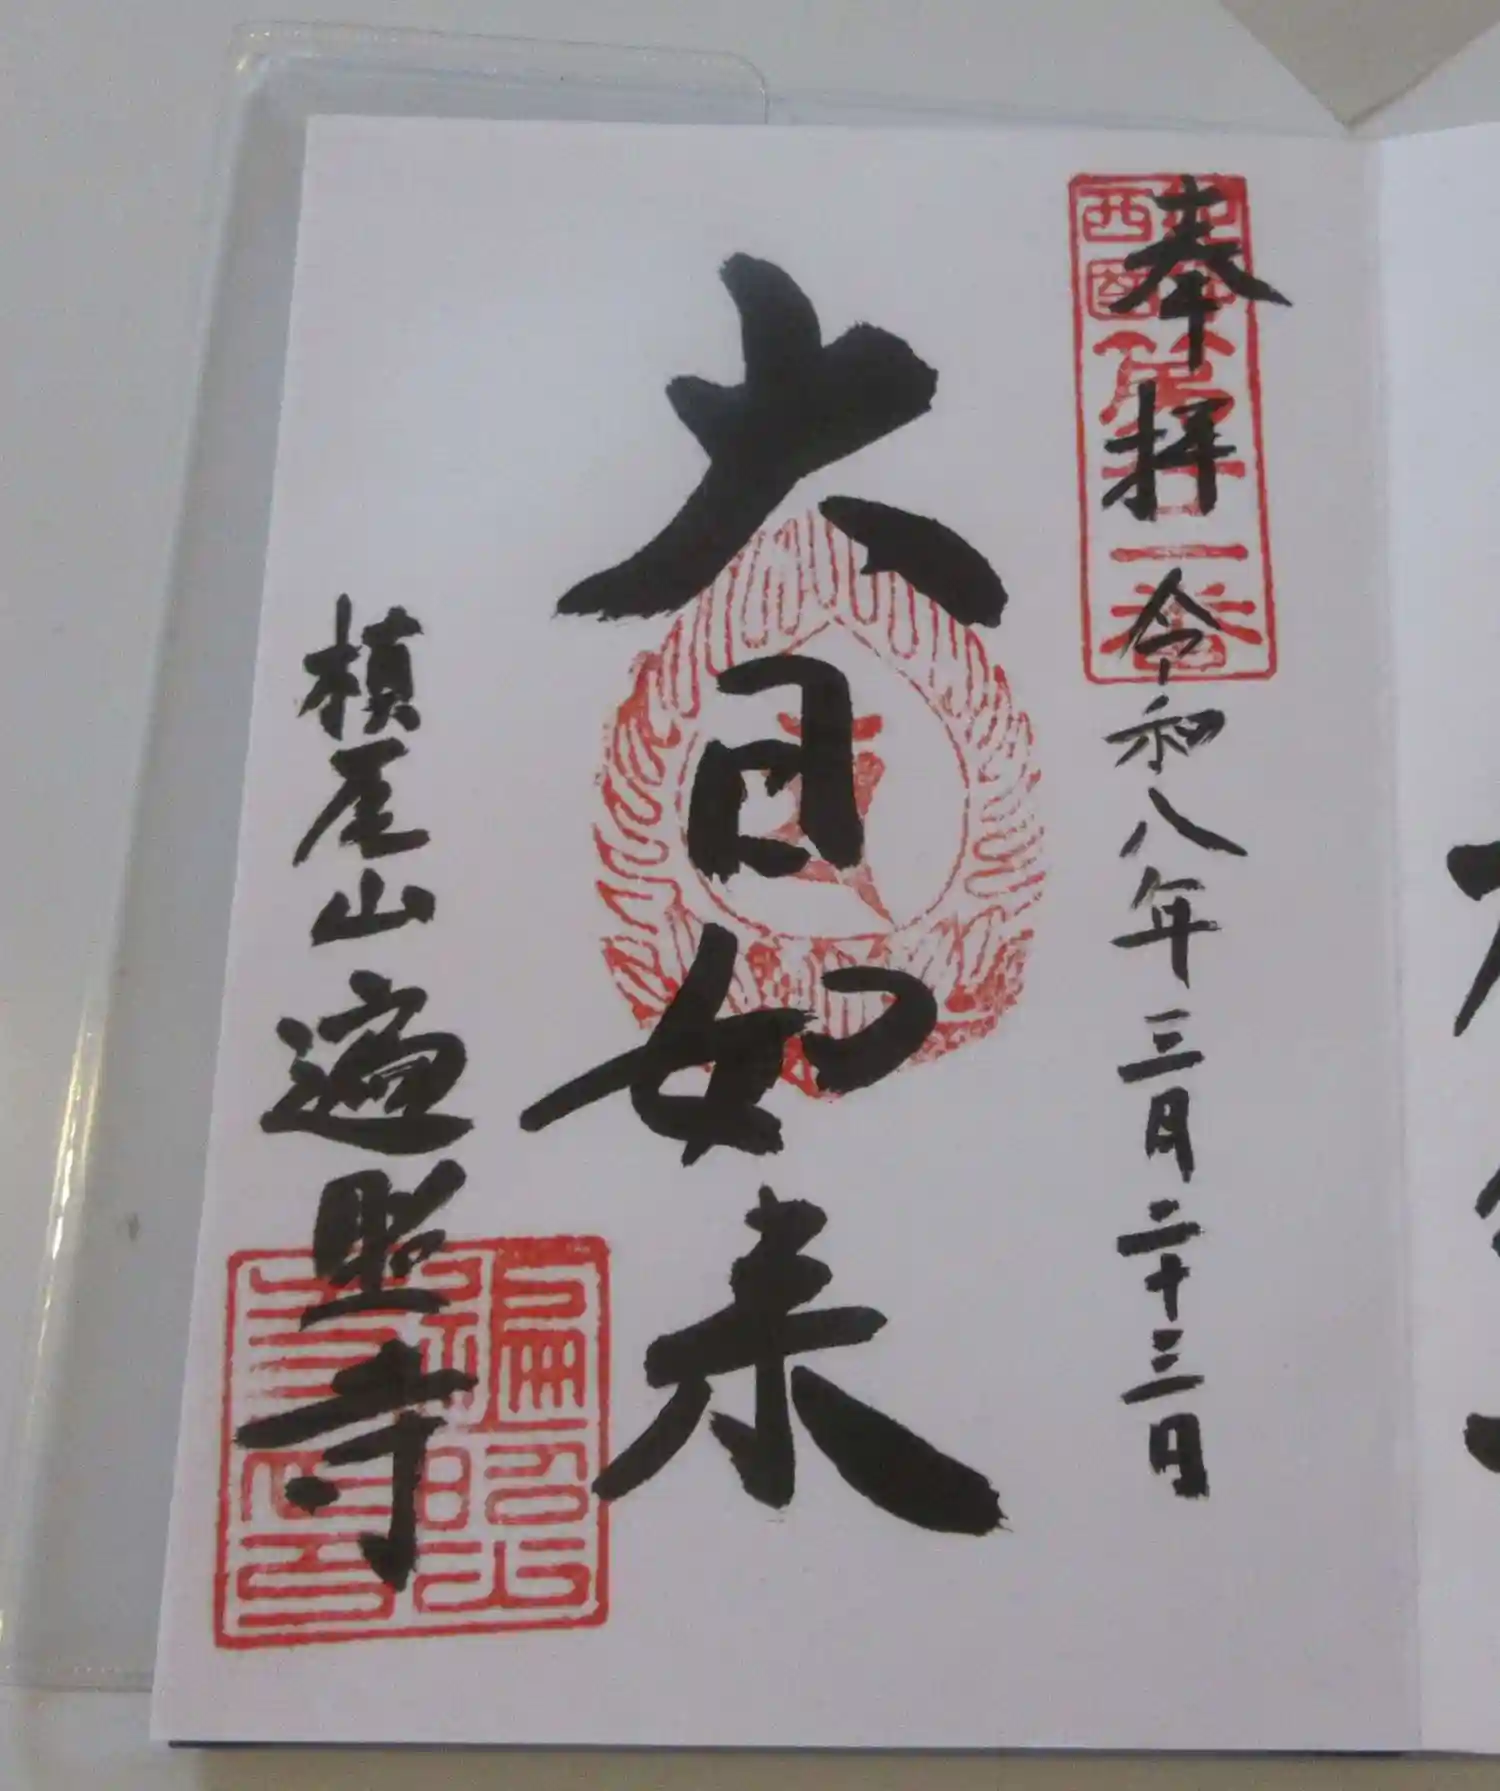 奉拝 令和八年三月二十三日
西国
大日如来
槙尾山 遍照寺